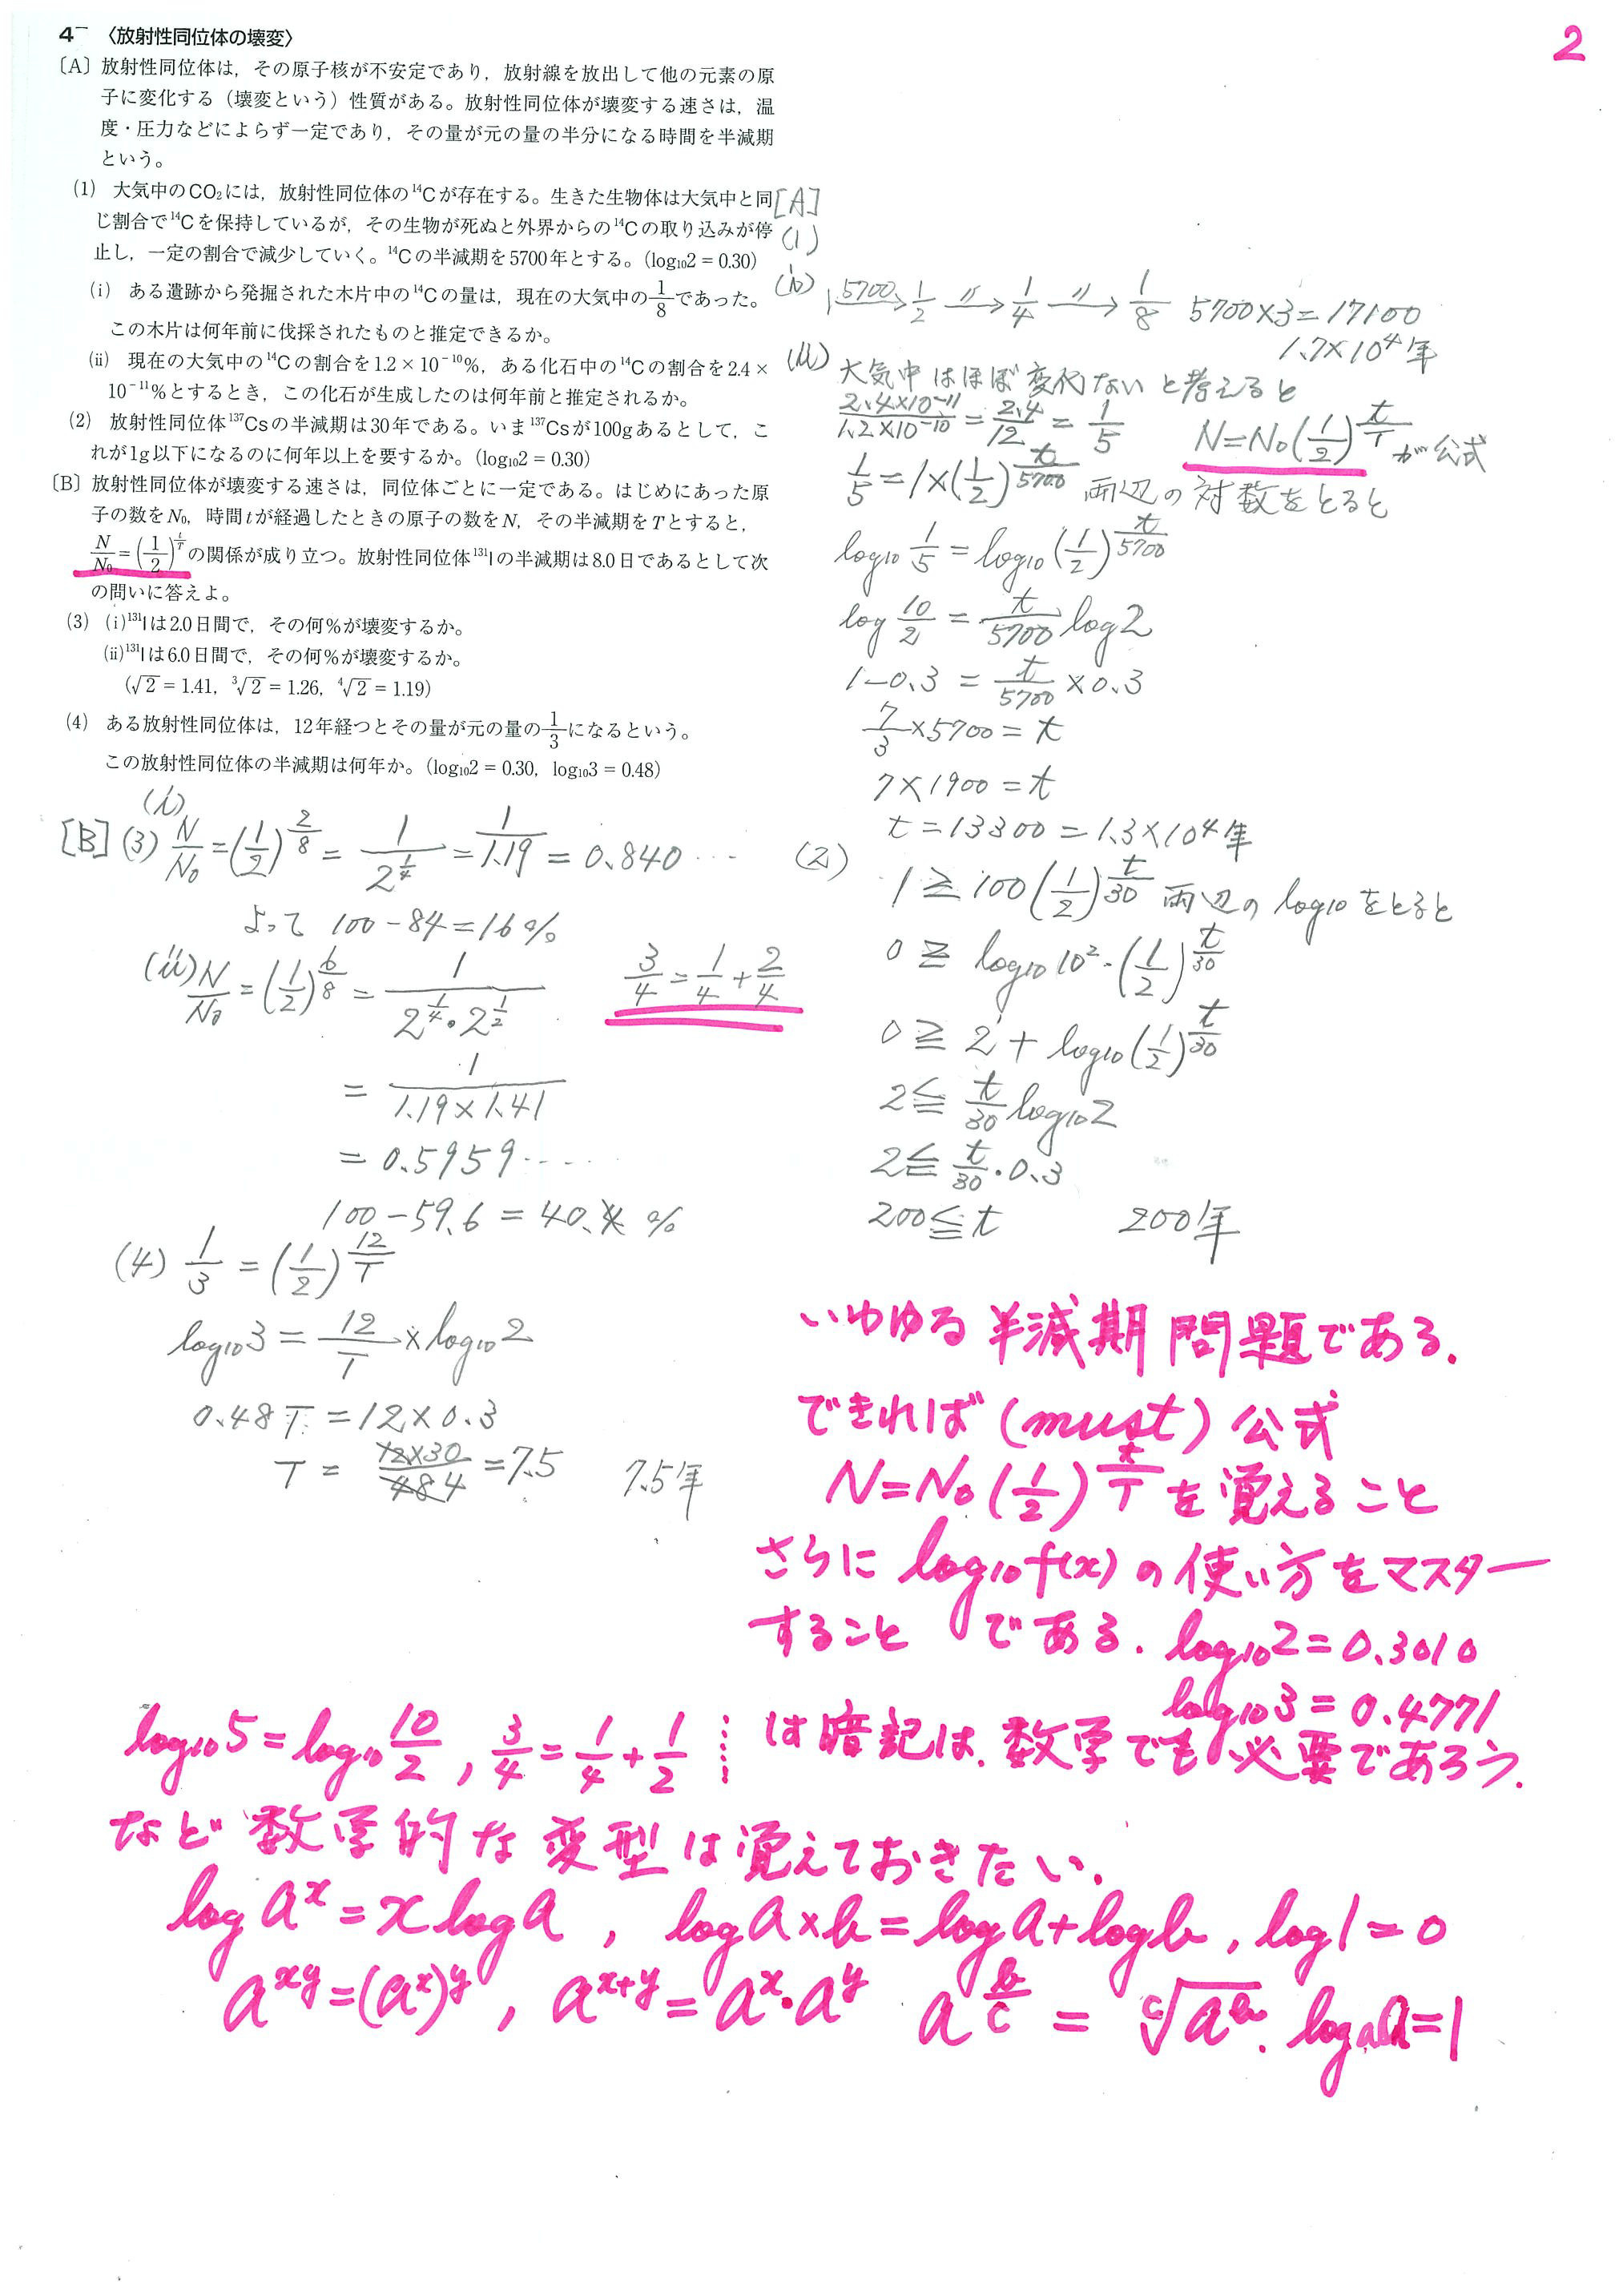 2
4 〈放射性同位体の壊変〉
〔A〕 放射性同位体は，その原子核が不安定であり，放射線を放出して他の元素の原
子に変化する（壊変という）性質がある。放射性同位体が壊変する速さは，温
度・圧力などによらず一定であり，その量が元の量の半分になる時間を半減期
という。
(1) 大気中のCO₂には，放射性同位体の¹⁴Cが存在する。生きた生物体は大気中と同
じ割合で¹⁴Cを保持しているが，その生物が死ぬと外界からの¹⁴Cの取り込みが停
止し，一定の割合で減少していく。¹⁴Cの半減期を5700年とする。(log₁₀2 = 0.30)
(i) ある遺跡から発掘された木片中の¹⁴Cの量は，現在の大気中の1/8であった。
この木片は何年前に伐採されたものと推定できるか。
(ii) 現在の大気中の¹⁴Cの割合を1.2 × 10⁻¹⁰%，ある化石中の¹⁴Cの割合を2.4 ×
10⁻¹¹%とするとき，この化石が生成したのは何年前と推定されるか。
(2) 放射性同位体¹³⁷Csの半減期は30年である。いま¹³⁷Csが100gあるとして，こ
れが1g以下になるのに何年以上を要するか。(log₁₀2 = 0.30)
〔B〕 放射性同位体が壊変する速さは，同位体ごとに一定である。はじめにあった原
子の数をN₀，時間tが経過したときの原子の数をN，その半減期をTとすると，
N/N₀ = (1/2)^(t/T) の関係が成り立つ。放射性同位体¹³¹Iの半減期は8.0日であるとして次
の問いに答えよ。
(3) (i)¹³¹Iは2.0日間で，その何%が壊変するか。
(ii)¹³¹Iは6.0日間で，その何%が壊変するか。
(√2 = 1.41, ³√2 = 1.26, ⁴√2 = 1.19)
(4) ある放射性同位体は，12年経つとその量が元の量の1/3になるという。
この放射性同位体の半減期は何年か。(log₁₀2 = 0.30, log₁₀3 = 0.48)
[A]
(1)
(i) 1 →5700→ 1/2 →〃→ 1/4 →〃→ 1/8 5700×3=17100
1.7×10⁴年
(ii) 大気中はほぼ変化ないと考えると
2.4×10⁻¹¹/1.2×10⁻¹⁰ = 2.4/12 = 1/5 N=N₀(1/2)^(t/T) が公式
1/5 = 1×(1/2)^(t/5700) 両辺の対数をとると
log₁₀ 1/5 = log₁₀ (1/2)^(t/5700)
log 10/2 = t/5700 log2
1-0.3 = t/5700 ×0.3
7/3 ×5700 = t
7×1900 = t
t = 13300 = 1.3×10⁴年
(2) 1 ≧ 100(1/2)^(t/30) 両辺の log₁₀ をとると
0 ≧ log₁₀ 10²・(1/2)^(t/30)
0 ≧ 2 + log₁₀(1/2)^(t/30)
2 ≦ t/30 log₁₀2
2 ≦ t/30・0.3
200 ≦ t 200年
[B] (3) (i) N/N₀ = (1/2)^(2/8) = 1/2^(1/4) = 1/1.19 = 0.840…
よって 100-84=16%
(ii) N/N₀ = (1/2)^(6/8) = 1/(2^(1/4)・2^(1/2)) 3/4 = 1/4 + 2/4
= 1/(1.19×1.41)
= 0.5959……
100-59.6 = 40.4 %
(4) 1/3 = (1/2)^(12/T)
log₁₀3 = 12/T × log₁₀2
0.48T = 12×0.3
T = 12×30/48 4 = 7.5 7.5年
いわゆる半減期問題である.
できれば(must)公式
N=N₀(1/2)^(t/T) を覚えること
さらに log₁₀f(x) の使い方をマスター
すること である. log₁₀2=0.3010
log₁₀3=0.4771
は暗記は、数学でも必要であろう.
log₁₀5=log₁₀ 10/2 , 3/4 = 1/4 + 1/2
など数学的な変型は覚えておきたい.
log aˣ = x log a , log a×b = log a + log b , log 1 = 0
a^(xy)=(aˣ)^y , a^(x+y) = aˣ・a^y a^(b/c) = ᶜ√(a^b) . logₐa=1